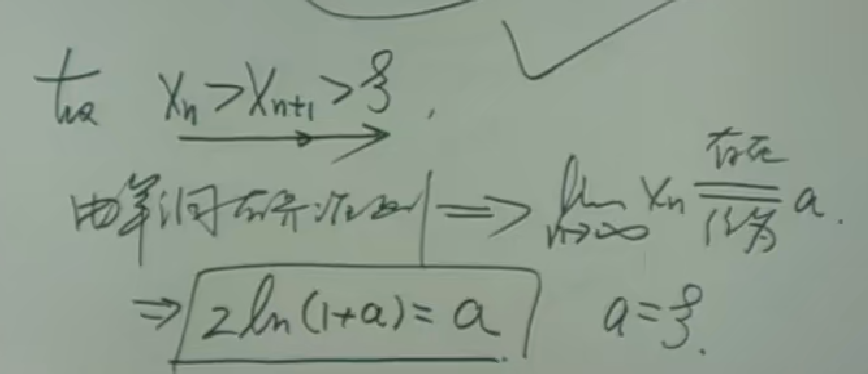 故 Xn > Xn+1 > ξ .
由单调有界准则 ⇒ lim n→∞ Xn 存在 记为 a .
⇒ 2ln(1+a) = a a = ξ.